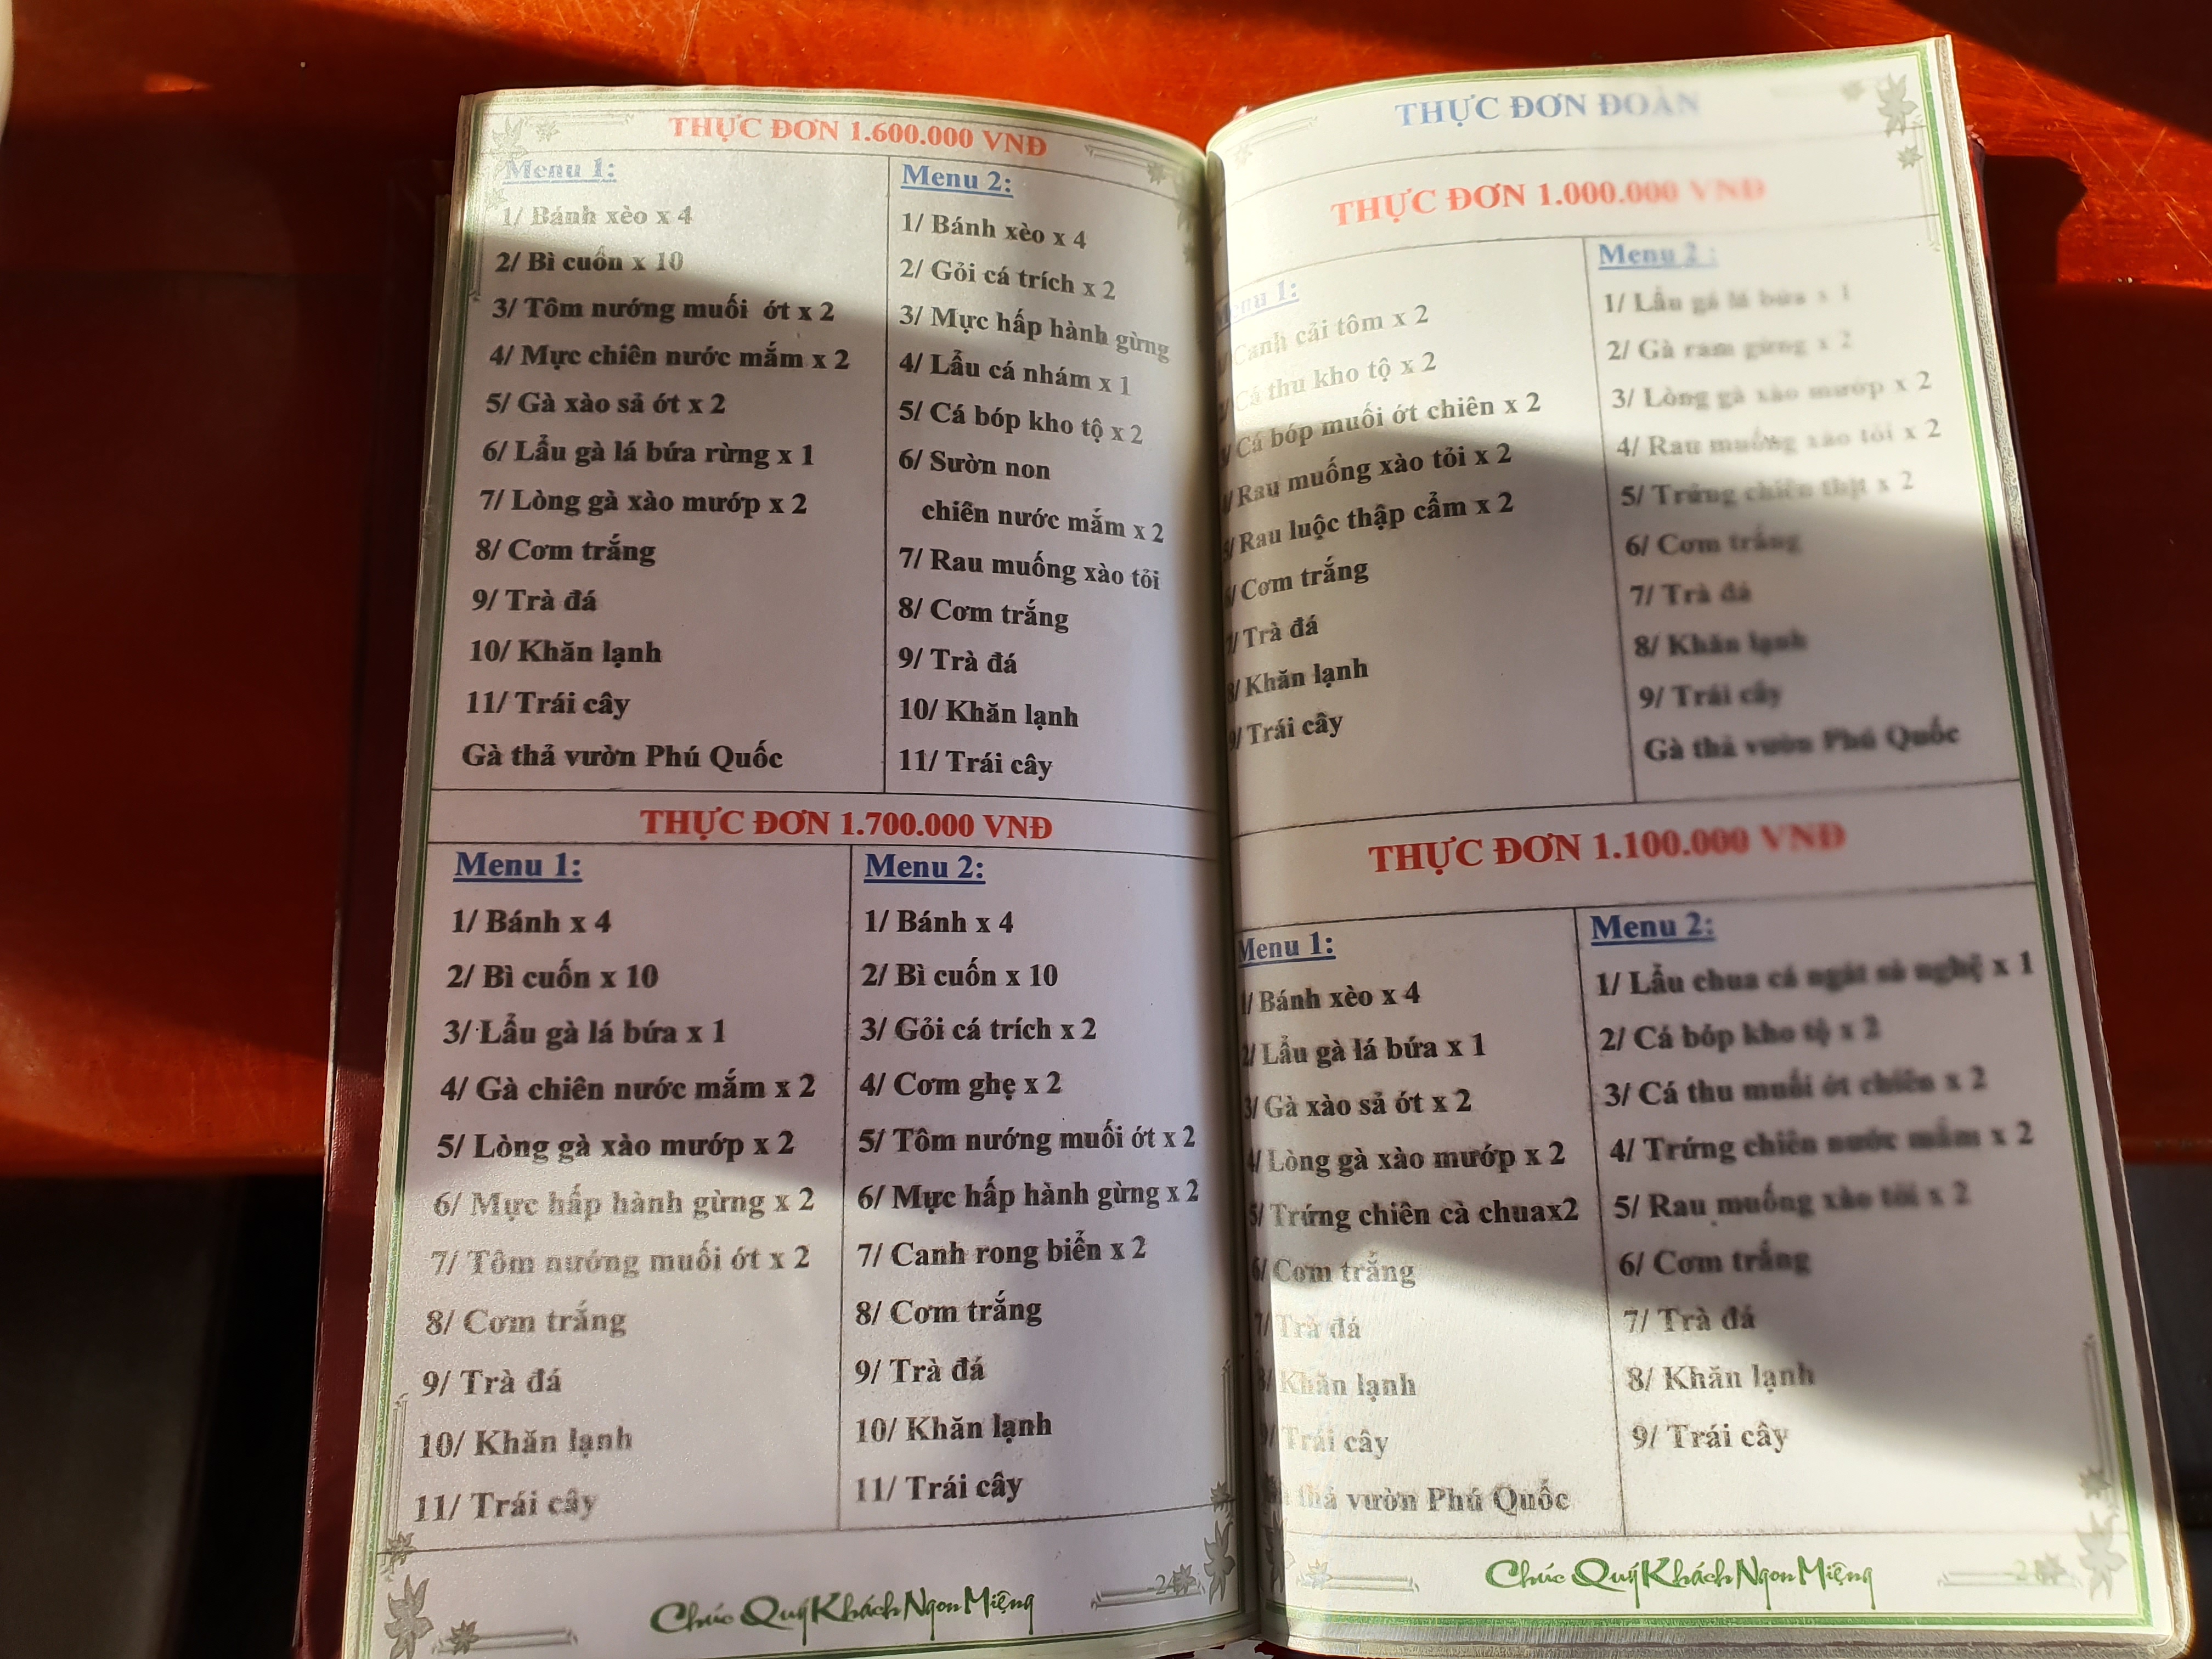 THỰC ĐƠN 1.600.000 VNĐ
Menu 1:
1/ Bánh xèo x 4
2/ Bì cuốn x 10
3/ Tôm nướng muối ớt x 2
4/ Mực chiên nước mắm x 2
5/ Gà xào sả ớt x 2
6/ Lẩu gà lá bứa rừng x 1
7/ Lòng gà xào mướp x 2
8/ Cơm trắng
9/ Trà đá
10/ Khăn lạnh
11/ Trái cây
Gà thả vườn Phú Quốc
Menu 2:
1/ Bánh xèo x 4
2/ Gỏi cá trích x 2
3/ Mực hấp hành gừng
4/ Lẩu cá nhám x 1
5/ Cá bóp kho tộ x 2
6/ Sườn non
chiên nước mắm x 2
7/ Rau muống xào tỏi
8/ Cơm trắng
9/ Trà đá
10/ Khăn lạnh
11/ Trái cây
THỰC ĐƠN 1.700.000 VNĐ
Menu 1:
1/ Bánh x 4
2/ Bì cuốn x 10
3/ Lẩu gà lá bứa x 1
4/ Gà chiên nước mắm x 2
5/ Lòng gà xào mướp x 2
6/ Mực hấp hành gừng x 2
7/ Tôm nướng muối ớt x 2
8/ Cơm trắng
9/ Trà đá
10/ Khăn lạnh
11/ Trái cây
Menu 2:
1/ Bánh x 4
2/ Bì cuốn x 10
3/ Gỏi cá trích x 2
4/ Cơm ghẹ x 2
5/ Tôm nướng muối ớt x 2
6/ Mực hấp hành gừng x 2
7/ Canh rong biển x 2
8/ Cơm trắng
9/ Trà đá
10/ Khăn lạnh
11/ Trái cây
Chúc Quý Khách Ngon Miệng
THỰC ĐƠN ĐOÀN
THỰC ĐƠN 1.000.000 VNĐ
Menu 1:
Canh cải tôm x 2
Cá thu kho tộ x 2
Cá bóp muối ớt chiên x 2
Rau muống xào tỏi x 2
5/ Rau luộc thập cẩm x 2
6/ Cơm trắng
7/ Trà đá
8/ Khăn lạnh
9/ Trái cây
Menu 2 :
1/ Lẩu gà lá bứa x 1
2/ Gà ram gừng x 2
3/ Lòng gà xào mướp x 2
4/ Rau muống xào tỏi x 2
5/ Trứng chiên thịt x 2
6/ Cơm trắng
7/ Trà đá
8/ Khăn lạnh
9/ Trái cây
Gà thả vườn Phú Quốc
THỰC ĐƠN 1.100.000 VNĐ
Menu 1:
1/ Bánh xèo x 4
2/ Lẩu gà lá bứa x 1
3/ Gà xào sả ớt x 2
4/ Lòng gà xào mướp x 2
5/ Trứng chiên cà chuax2
6/ Cơm trắng
7/ Trà đá
8/ Khăn lạnh
9/ Trái cây
thả vườn Phú Quốc
Menu 2:
1/ Lẩu chua cá ngát sả nghệ x 1
2/ Cá bóp kho tộ x 2
3/ Cá thu muối ớt chiên x 2
4/ Trứng chiên nước mắm x 2
5/ Rau muống xào tỏi x 2
6/ Cơm trắng
7/ Trà đá
8/ Khăn lạnh
9/ Trái cây
Chúc Quý Khách Ngon Miệng